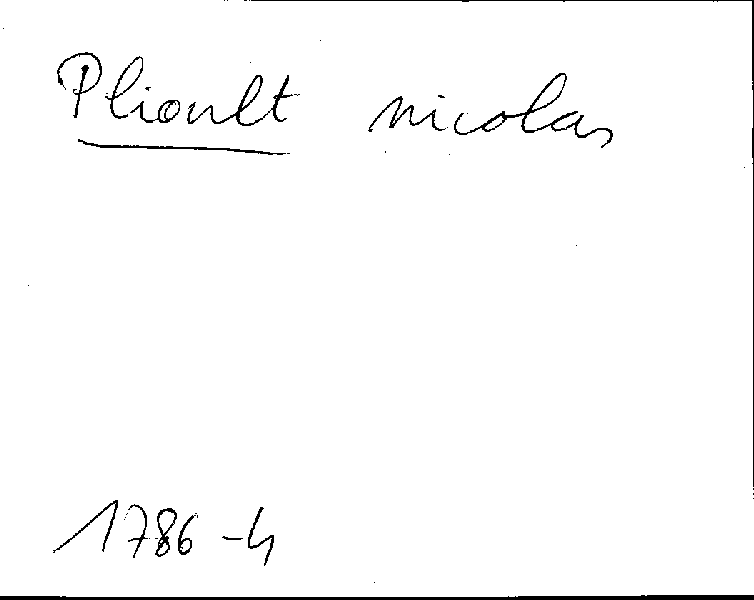 Plioult nicolas
1786-4